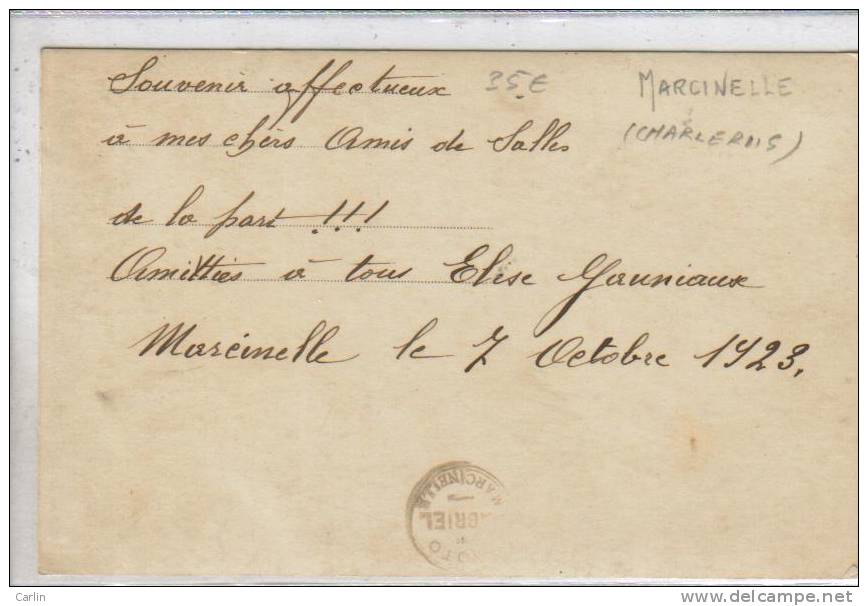 Souvenir affectueux 35€ MARCINELLE
à mes chers Amis de Salles (CHARLEROIS)
de la part !!!
Amittiés à tous Elise Gauniaux
Marcinelle le 7 Octobre 1923.
MARCINELLE
ABRIEL
OTO
Carlin
delcampe.net